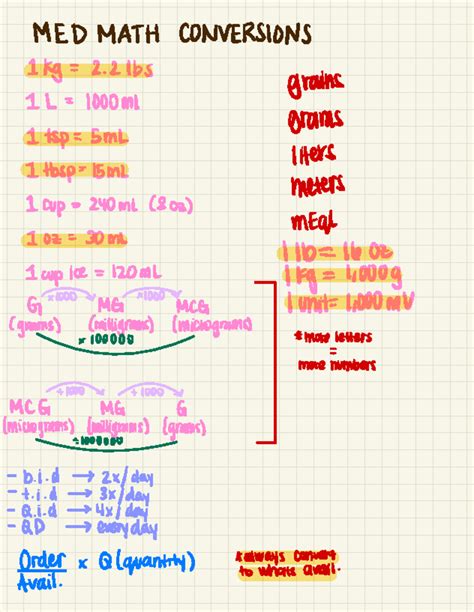 MED MATH CONVERSIONS
1 kg = 2.2 lbs
1 L = 1000 mL
1 tsp = 5 mL
1 tbsp = 15 mL
1 cup = 240 mL (8 oz)
1 oz = 30 mL
1 cup ice = 120 mL
grains
grams
liters
meters
mEq
1 lb = 16 oz
1 kg = 1,000 g
1 unit = 1,000 mU
* more letters
=
more numbers
×1000 ×1000
G MG MCG
(grams) (milligrams) (micrograms)
÷1000 ÷1000
MCG MG G
(micrograms) (milligrams) (grams)
÷ 1000000
- b.i.d → 2x/day
- t.i.d → 3x/day
- Q.i.d → 4x/day
- QD → everyday
Order x Q (quantity)
Avail.
* always convert
to whats avail.